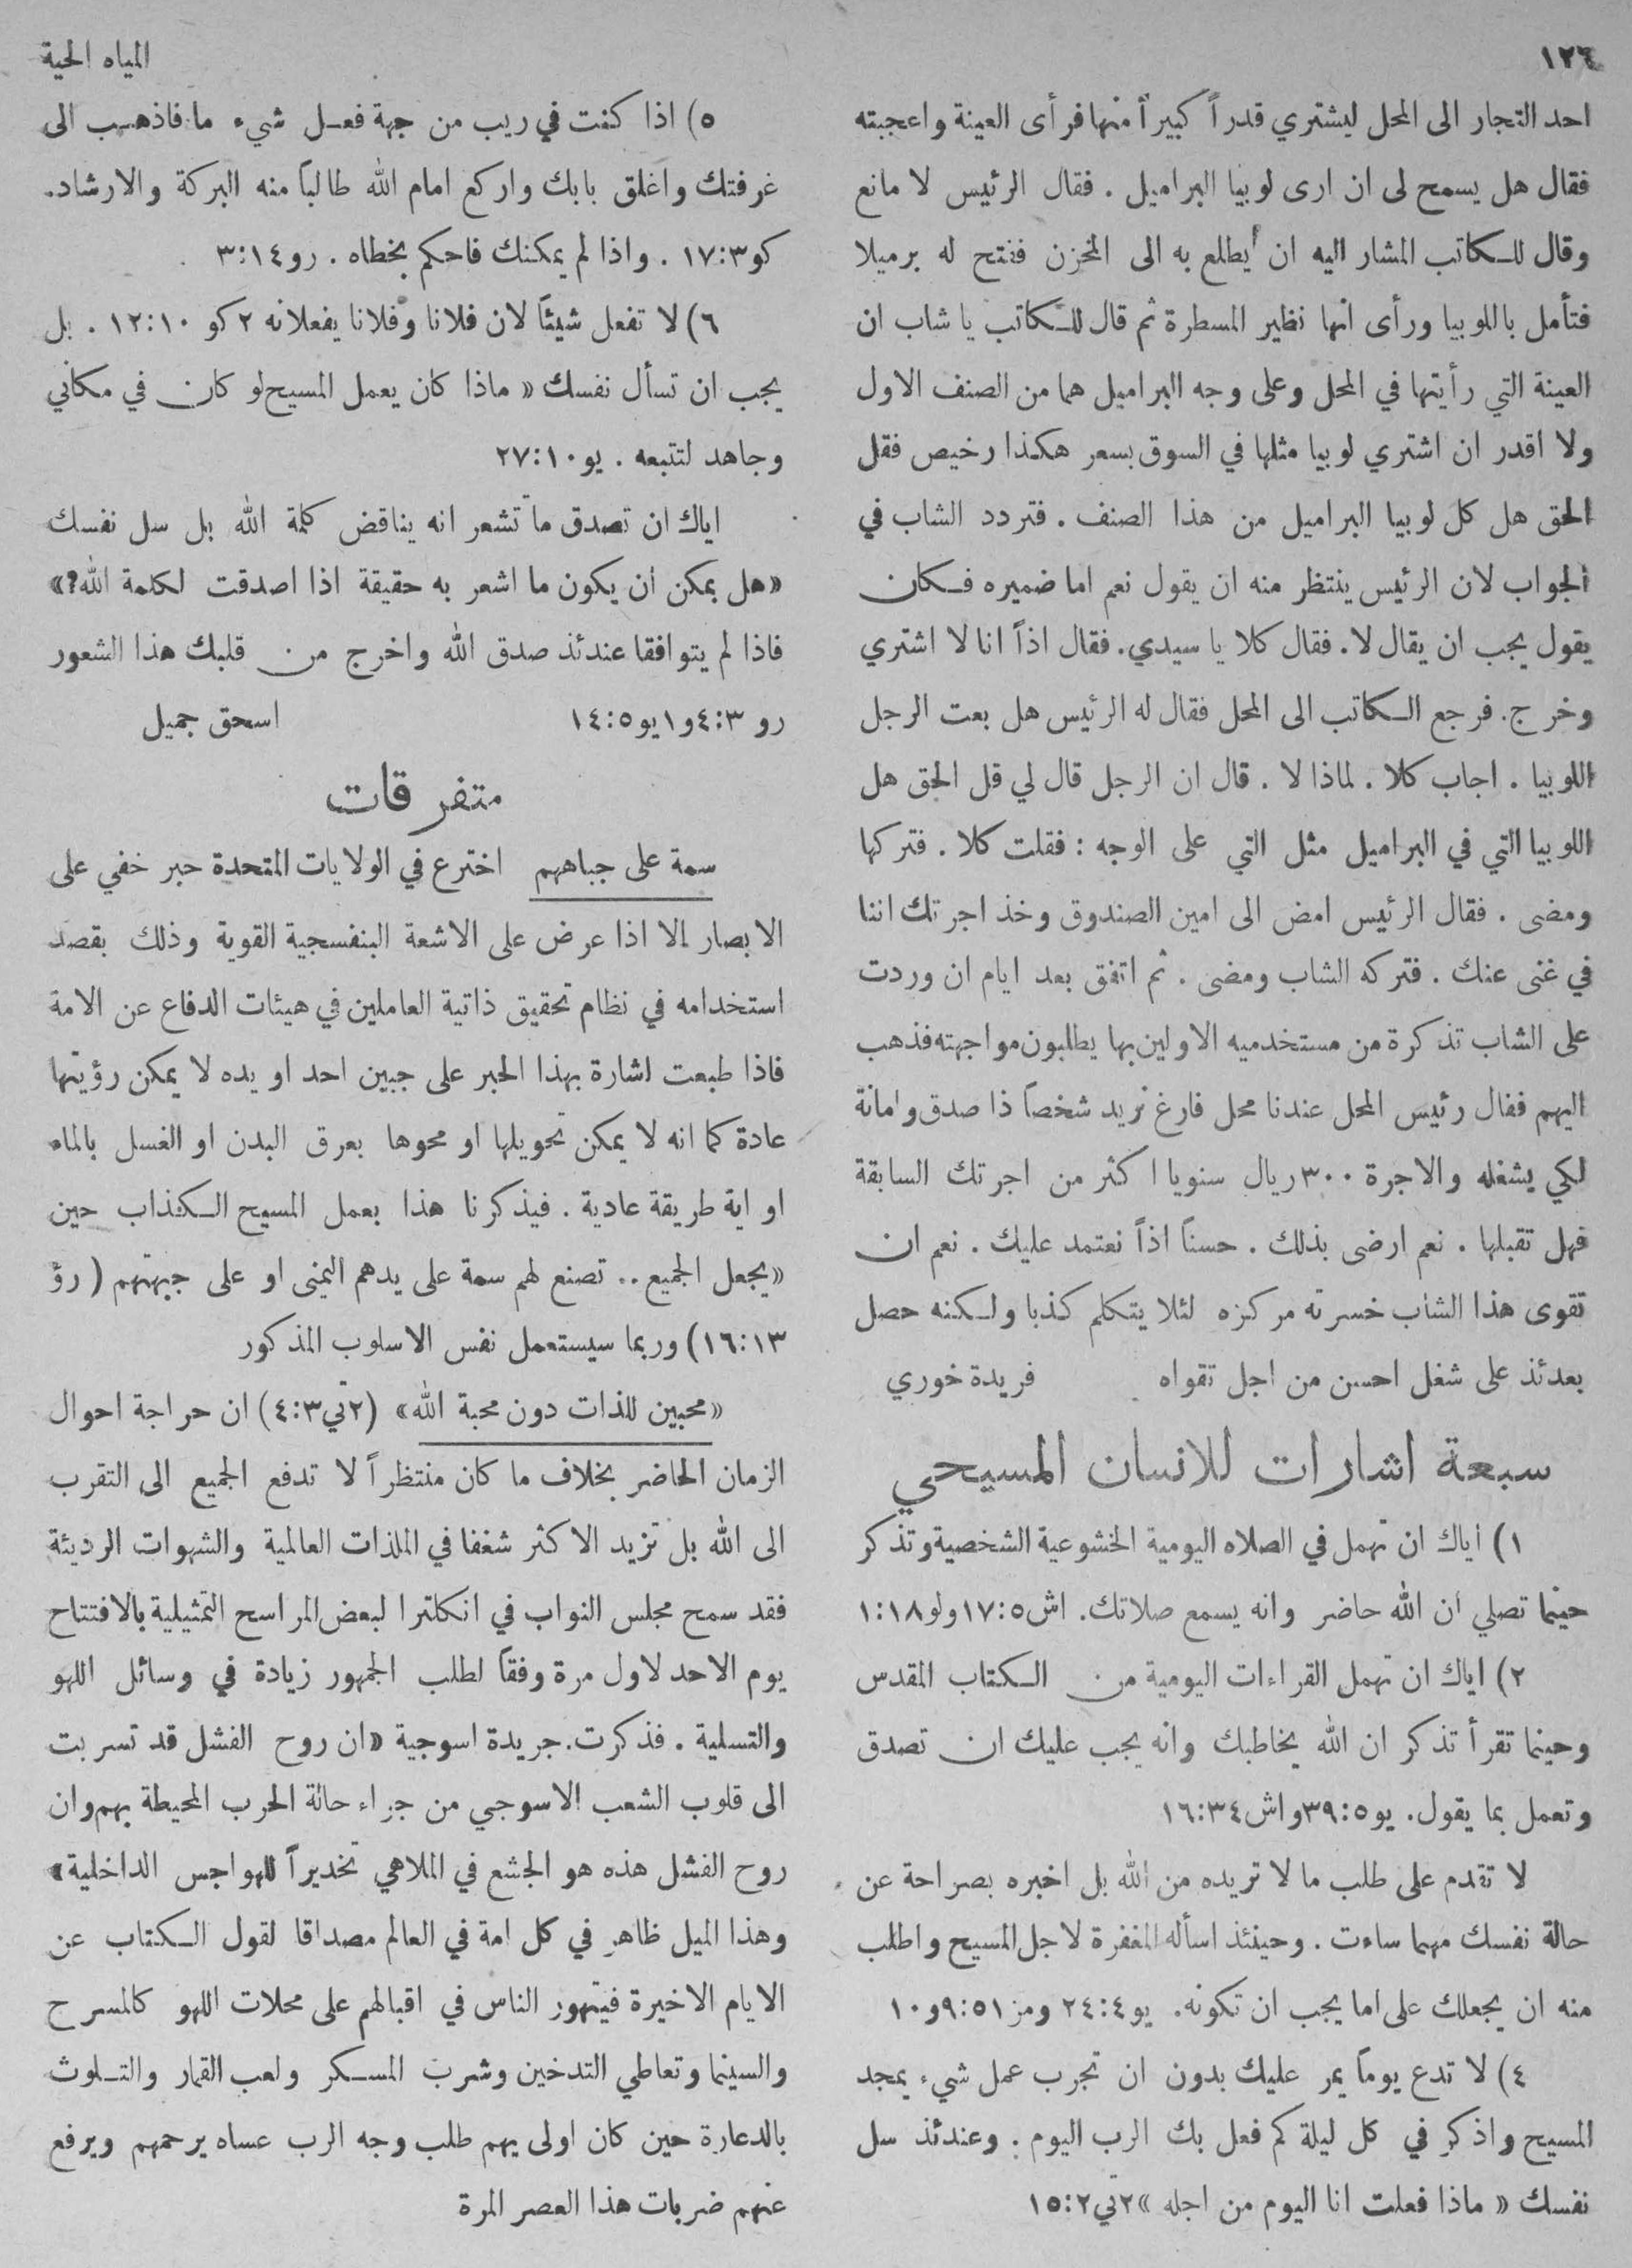 ١٢٦
المياه الحية
احد التجار الى المحل ليشتري قدراً كبيراً منها فرأى العينة واعجبته
فقال هل يسمح لى ان ارى لوبيا البراميل . فقال الرئيس لا مانع
وقال للكاتب المشار اليه ان يطلع به الى المخزن ففتح له برميلا
فتأمل باللوبيا ورأى انها نظير المسطرة ثم قال للكاتب يا شاب ان
العينة التي رأيتها في المحل وعلى وجه البراميل هما من الصنف الاول
ولا اقدر ان اشتري لوبيا مثلها في السوق بسعر هكذا رخيص فقل
الحق هل كل لوبيا البراميل من هذا الصنف . فتردد الشاب في
الجواب لان الرئيس ينتظر منه ان يقول نعم اما ضميره فكان
يقول يجب ان يقال لا. فقال كلا يا سيدي. فقال اذاً انا لا اشتري
وخرج. فرجع الكاتب الى المحل فقال له الرئيس هل بعت الرجل
اللوبيا . اجاب كلا . لماذا لا . قال ان الرجل قال لي قل الحق هل
اللوبيا التي في البراميل مثل التي على الوجه : فقلت كلا . فتركها
ومضى . فقال الرئيس امض الى امين الصندوق وخذ اجرتك اننا
في غنى عنك . فتركه الشاب ومضى . ثم اتفق بعد ايام ان وردت
على الشاب تذكرة من مستخدميه الاولين بها يطلبون مواجهته فذهب
اليهم فقال رئيس المحل عندنا محل فارغ نريد شخصاً ذا صدق وامانة
لكي يشغله والاجرة ٣٠٠ ريال سنويا اكثر من اجرتك السابقة
فهل تقبلها . نعم ارضى بذلك . حسناً اذاً نعتمد عليك . نعم ان
تقوى هذا الشاب خسرته مركزه لئلا يتكلم كذبا ولكنه حصل
بعدئذ على شغل احسن من اجل تقواه فريدة خوري
سبعة اشارات للانسان المسيحي
١) اياك ان تهمل في الصلاه اليومية الخشوعية الشخصية وتذكر
حينما تصلي ان الله حاضر وانه يسمع صلاتك. اش ١٧:٥ ولو ١:١٨
٢) اياك ان تهمل القراءات اليومية من الكتاب المقدس
وحينما تقرأ تذكر ان الله يخاطبك وانه يجب عليك ان تصدق
وتعمل بما يقول. يو ٣٩:٥ واش ١٦:٣٤
لا تقدم على طلب ما لا تريده من الله بل اخبره بصراحة عن
حالة نفسك مهما ساءت . وحينئذ اسأله المغفرة لاجل المسيح واطلب
منه ان يجعلك على اما يجب ان تكونه. يو ٢٤:٤ ومز ٩:٥١ و١٠
٤) لا تدع يوماً يمر عليك بدون ان تجرب عمل شيء يمجد
المسيح واذكر في كل ليلة كم فعل بك الرب اليوم . وعندئذ سل
نفسك « ماذا فعلت انا اليوم من اجله » ٢تي ١٥:٢
٥) اذا كنت في ريب من جهة فعل شيء ما فاذهب الى
غرفتك واغلق بابك واركع امام الله طالباً منه البركة والارشاد.
كو ١٧:٣ . واذا لم يمكنك فاحكم بخطاه . رو ٣:١٤
٦) لا تفعل شيئاً لان فلانا وفلانا يفعلانه ٢ كو ١٢:١٠ . بل
يجب ان تسأل نفسك « ماذا كان يعمل المسيح لو كان في مكاني
وجاهد لتتبعه . يو ٢٧:١٠
اياك ان تصدق ما تشعر انه يناقض كلمة الله بل سل نفسك
«هل يمكن ان يكون ما اشعر به حقيقة اذا اصدقت لكلمة الله؟»
فاذا لم يتوافقا عندئذ صدق الله واخرج من قلبك هذا الشعور
رو ٤:٣ و١يو ١٤:٥ اسحق جميل
متفرقات
سمة على جباههم اخترع في الولايات المتحدة حبر خفي على
الابصار الا اذا عرض على الاشعة البنفسجية القوية وذلك بقصد
استخدامه في نظام تحقيق ذاتية العاملين في هيئات الدفاع عن الامة
فاذا طبعت اشارة بهذا الحبر على جبين احد او يده لا يمكن رؤيتها
عادة كما انه لا يمكن تحويلها او محوها بعرق البدن او الغسل بالماء
او اية طريقة عادية . فيذكرنا هذا بعمل المسيح الكذاب حين
«يجعل الجميع .. تصنع لهم سمة على يدهم اليمنى او على جبهتهم (رؤ
١٦:١٣) وربما سيستعمل نفس الاسلوب المذكور
«محبين للذات دون محبة الله» (٢تي ٤:٣) ان حراجة احوال
الزمان الحاضر بخلاف ما كان منتظراً لا تدفع الجميع الى التقرب
الى الله بل تزيد الاكثر شغفا في الملذات العالمية والشهوات الرديئة
فقد سمح مجلس النواب في انكلترا لبعض المراسح التمثيلية بالافتتاح
يوم الاحد لاول مرة وفقاً لطلب الجمهور زيادة في وسائل اللهو
والتسلية . فذكرت جريدة اسوجية «ان روح الفشل قد تسربت
الى قلوب الشعب الاسوجي من جراء حالة الحرب المحيطة بهم وان
روح الفشل هذه هو الجشع في الملاهي تخديراً للهواجس الداخلية»
وهذا الميل ظاهر في كل امة في العالم مصداقا لقول الكتاب عن
الايام الاخيرة فيتهور الناس في اقبالهم على محلات اللهو كالمسرح
والسينما وتعاطي التدخين وشرب المسكر ولعب القمار والتلوث
بالدعارة حين كان اولى بهم طلب وجه الرب عساه يرحمهم ويرفع
عنهم ضربات هذا العصر المرة